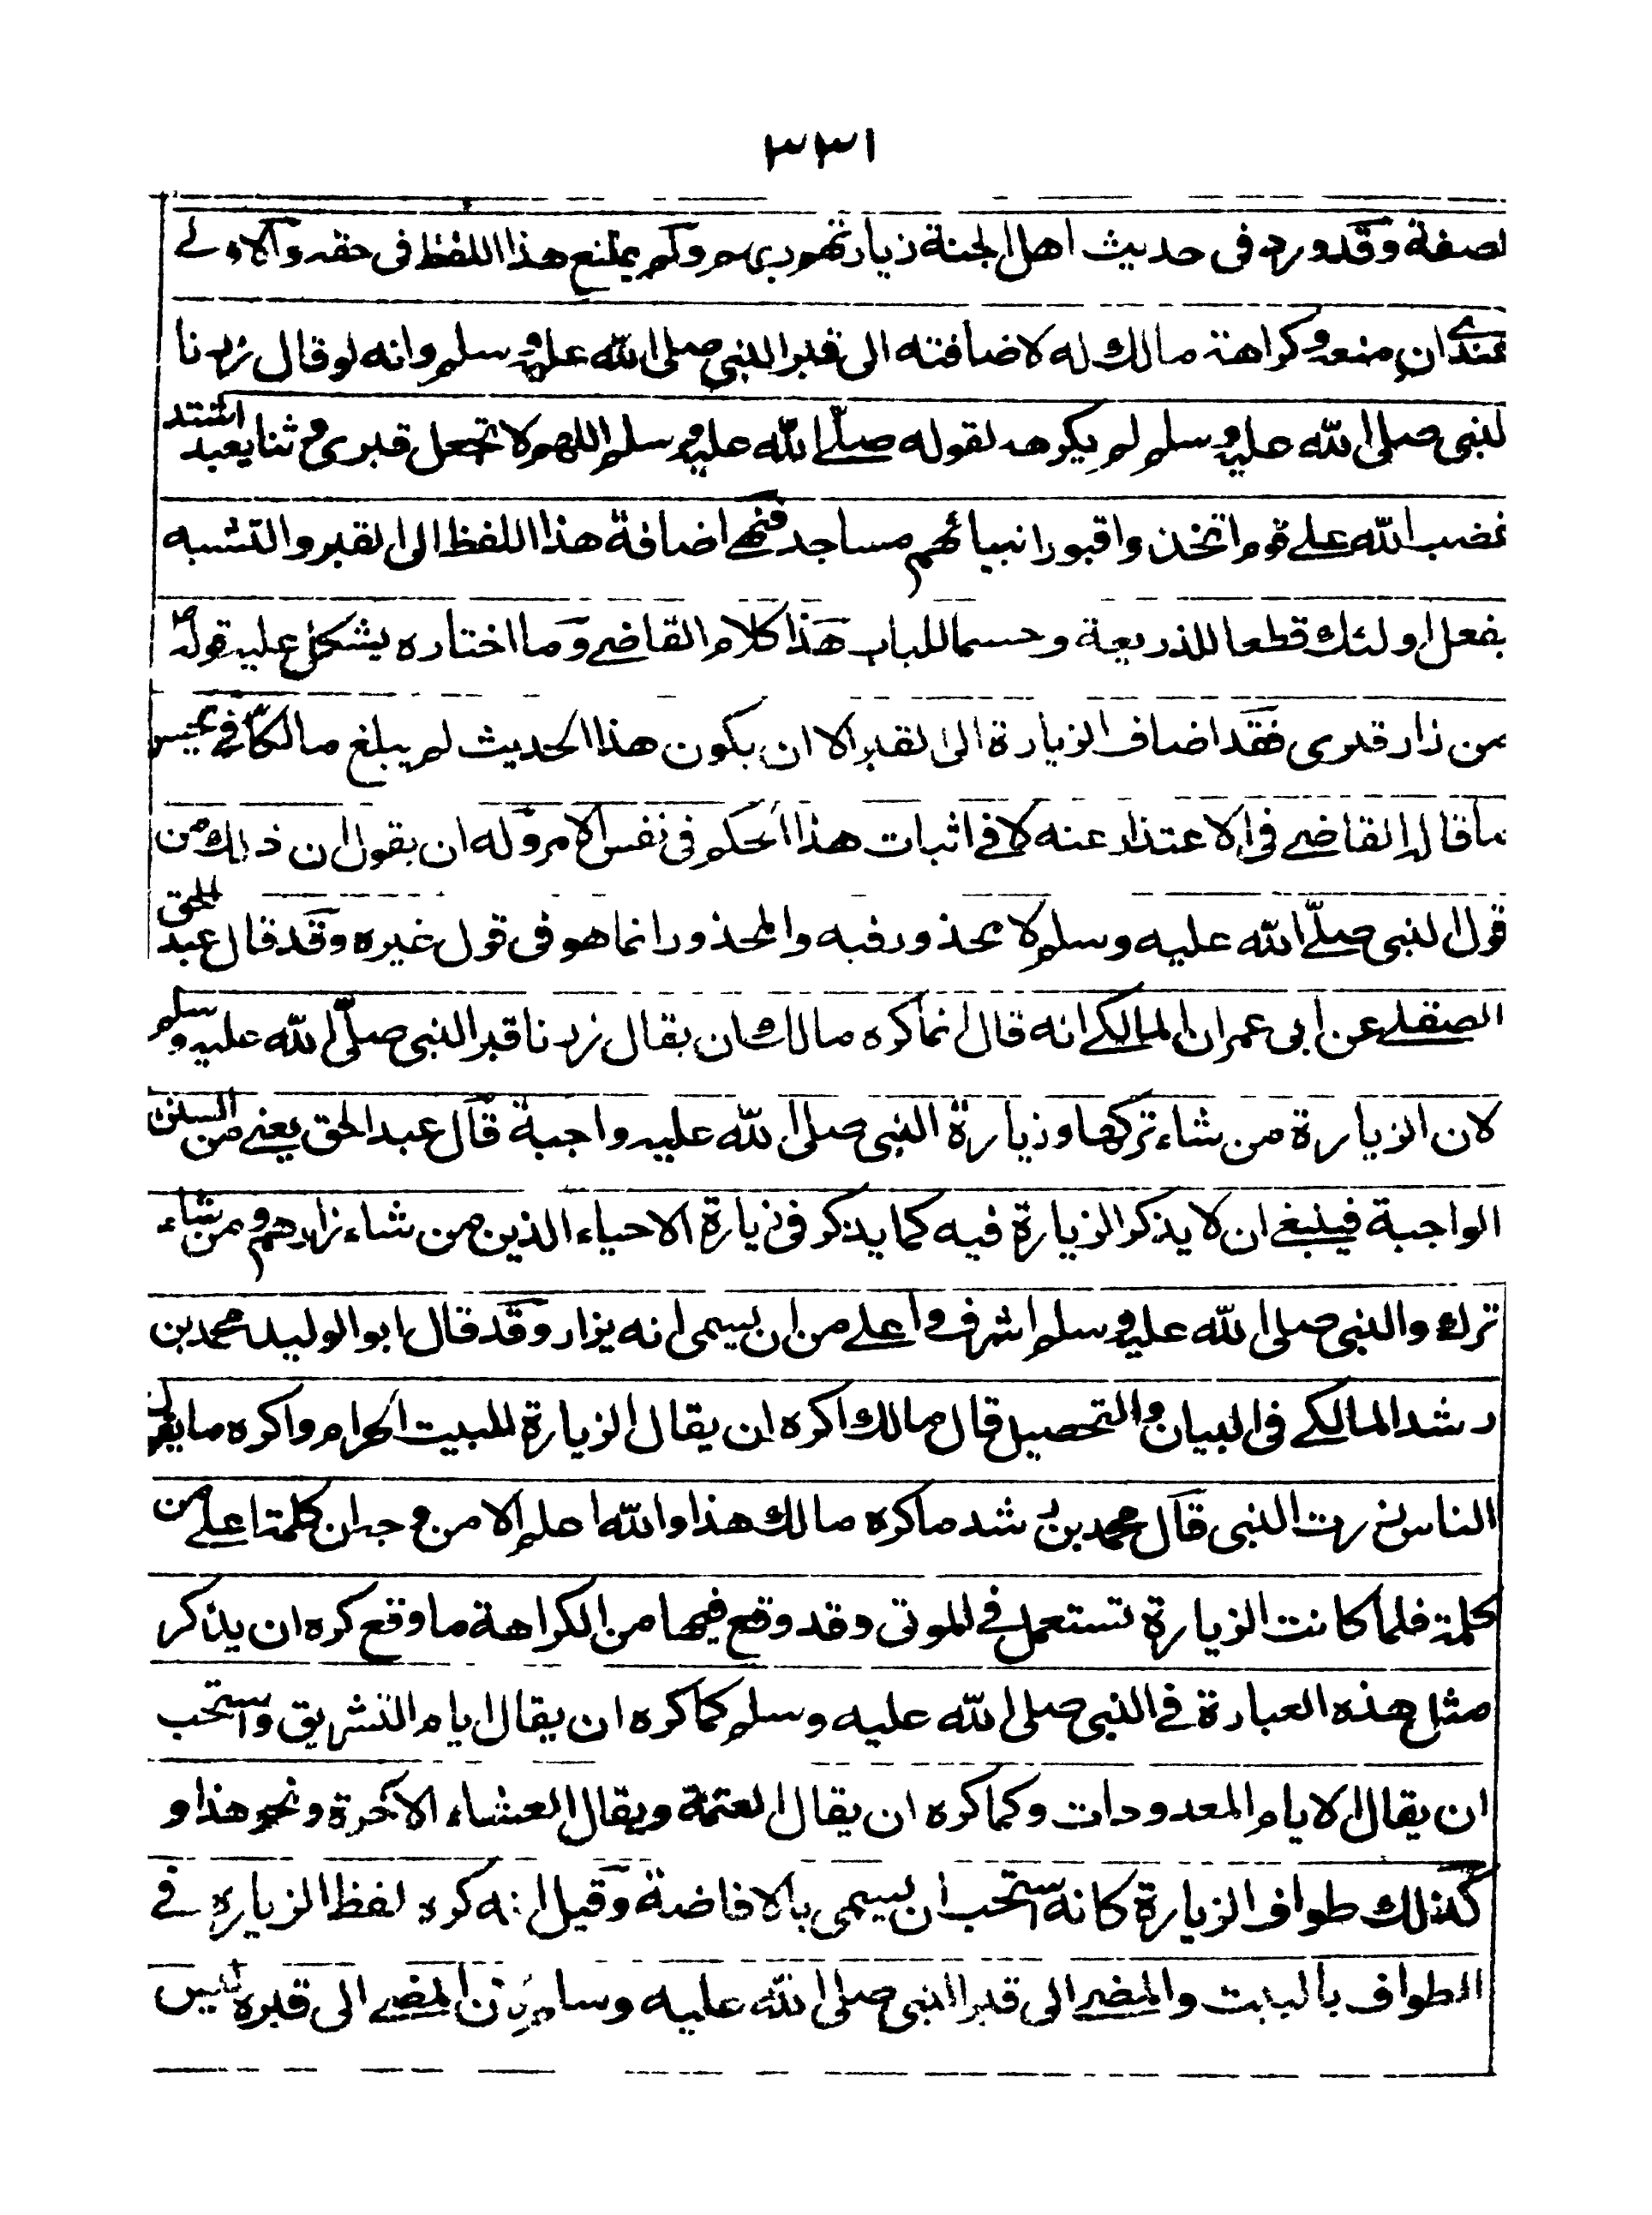 ٣٣١
لصفة وقد ورد فى حديث اهل الجنة زيارتهم ربهم ولم يمتنع هذا اللفظ فى حقه والاولے
عندى ان منعه وكراهة مالك له لاضافته الى قبر النبى صلى الله عليه وسلم وانه لو قال زرنا
لنبى صلى الله عليه وسلم لم يكرهه لقوله صلّے الله عليه وسلم اللهم لا تجعل قبرى وثنا يعبد اشتد
غضب الله علے قوم اتخذوا قبور انبيائهم مساجد فنهے اضافة هذا اللفظ الى القبر والتشبه
بفعل اولئك قطعا للذريعة وحسما للباب هذا كلام القاضے وما اختاره يشكل عليه قوله
من زار قبرى فقد اضاف الزيارة الى القبر الا ان يكون هذا الحديث لم يبلغ مالكاً فحينئذ يحسن
ما قاله القاضے فى الاعتذار عنه لا فے اثبات هذا الحكم فى نفس الامر وله ان يقول ان ذلك من
قول النبى صلّے الله عليه وسلم لا محذور فيه والمحذور انما هو فى قول غيره وقد قال عبد الحق
الصقلے عن ابى عمران المالكے انه قال انما كره مالك ان يقال زرنا قبر النبى صلّى الله عليه وسلم
لان الزيارة من شاء تركها وزيارة النبى صلى الله عليه واجبة قال عبد الحق يعنے من السنن
الواجبة فينبغے ان لا يذكر الزيارة فيه كما يذكر فى زيارة الاحياء الذين من شاء زارهم ومن شاء
ترك والنبى صلى الله عليه وسلم اشرف واعلے من ان يسمى انه يزار وقد قال ابو الوليد محمد بن
رشد المالكے فى البيان والتحصيل قال مالك اكره ان يقال الزيارة للبيت الحرام واكره ما يقول
الناس زرت النبى قال محمد بن رشد ما كره مالك هذا والله اعلم الا من وجه ان كلمة اعلے من
كلمة فلما كانت الزيارة تستعمل فے الموتى وقد وقع فيها من الكراهة ما وقع كره ان يذكر
مثل هذه العبارة فے النبى صلى الله عليه وسلم كما كره ان يقال ايام التشريق واستحب
ان يقال الايام المعدودات وكما كره ان يقال العتمة ويقال العشاء الآخرة ونحو هذا و
كذلك طواف الزيارة كانه استحب ان يسمى بالافاضة وقيل انه كره لفظ الزيارة فے
الطواف بالبيت والمضے الى قبر النبى صلى الله عليه وسلم لان المضے الى قبره ليس